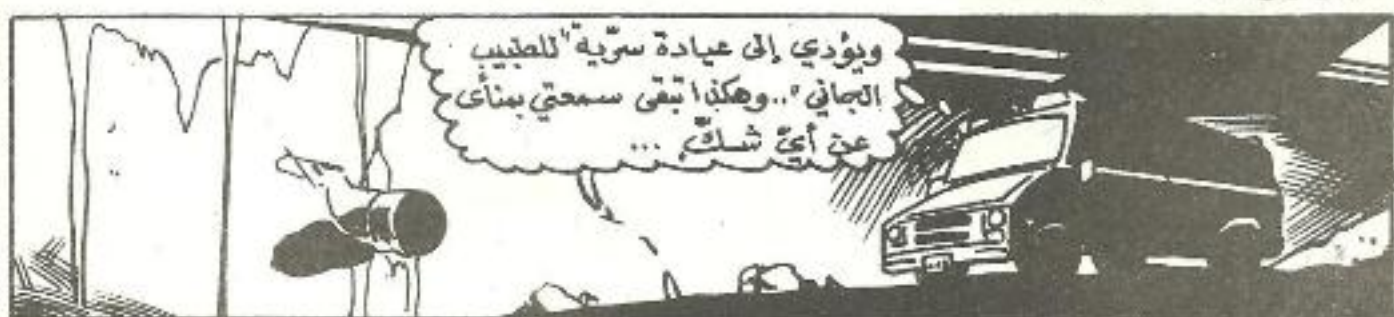 ويؤدي إلى عيادة سرّية "للطبيب
الجاني".. وهكذا تبقى سمعتي بمنأى
عن أيّ شكّ ...